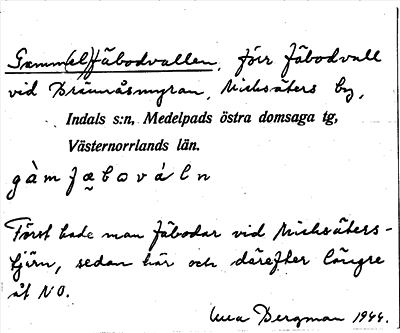 Gamm(el)fäbodvallen, förr fäbodvall
vid Brännåsmyran, Nicksäters by,
Indals s:n, Medelpads östra domsaga tg,
Västernorrlands län.
gàm fæ̬bωváln
Först hade man fäbodar vid Nicksäters-
tjärn, sedan här och därefter längre
åt NO.
Bergman 1944.